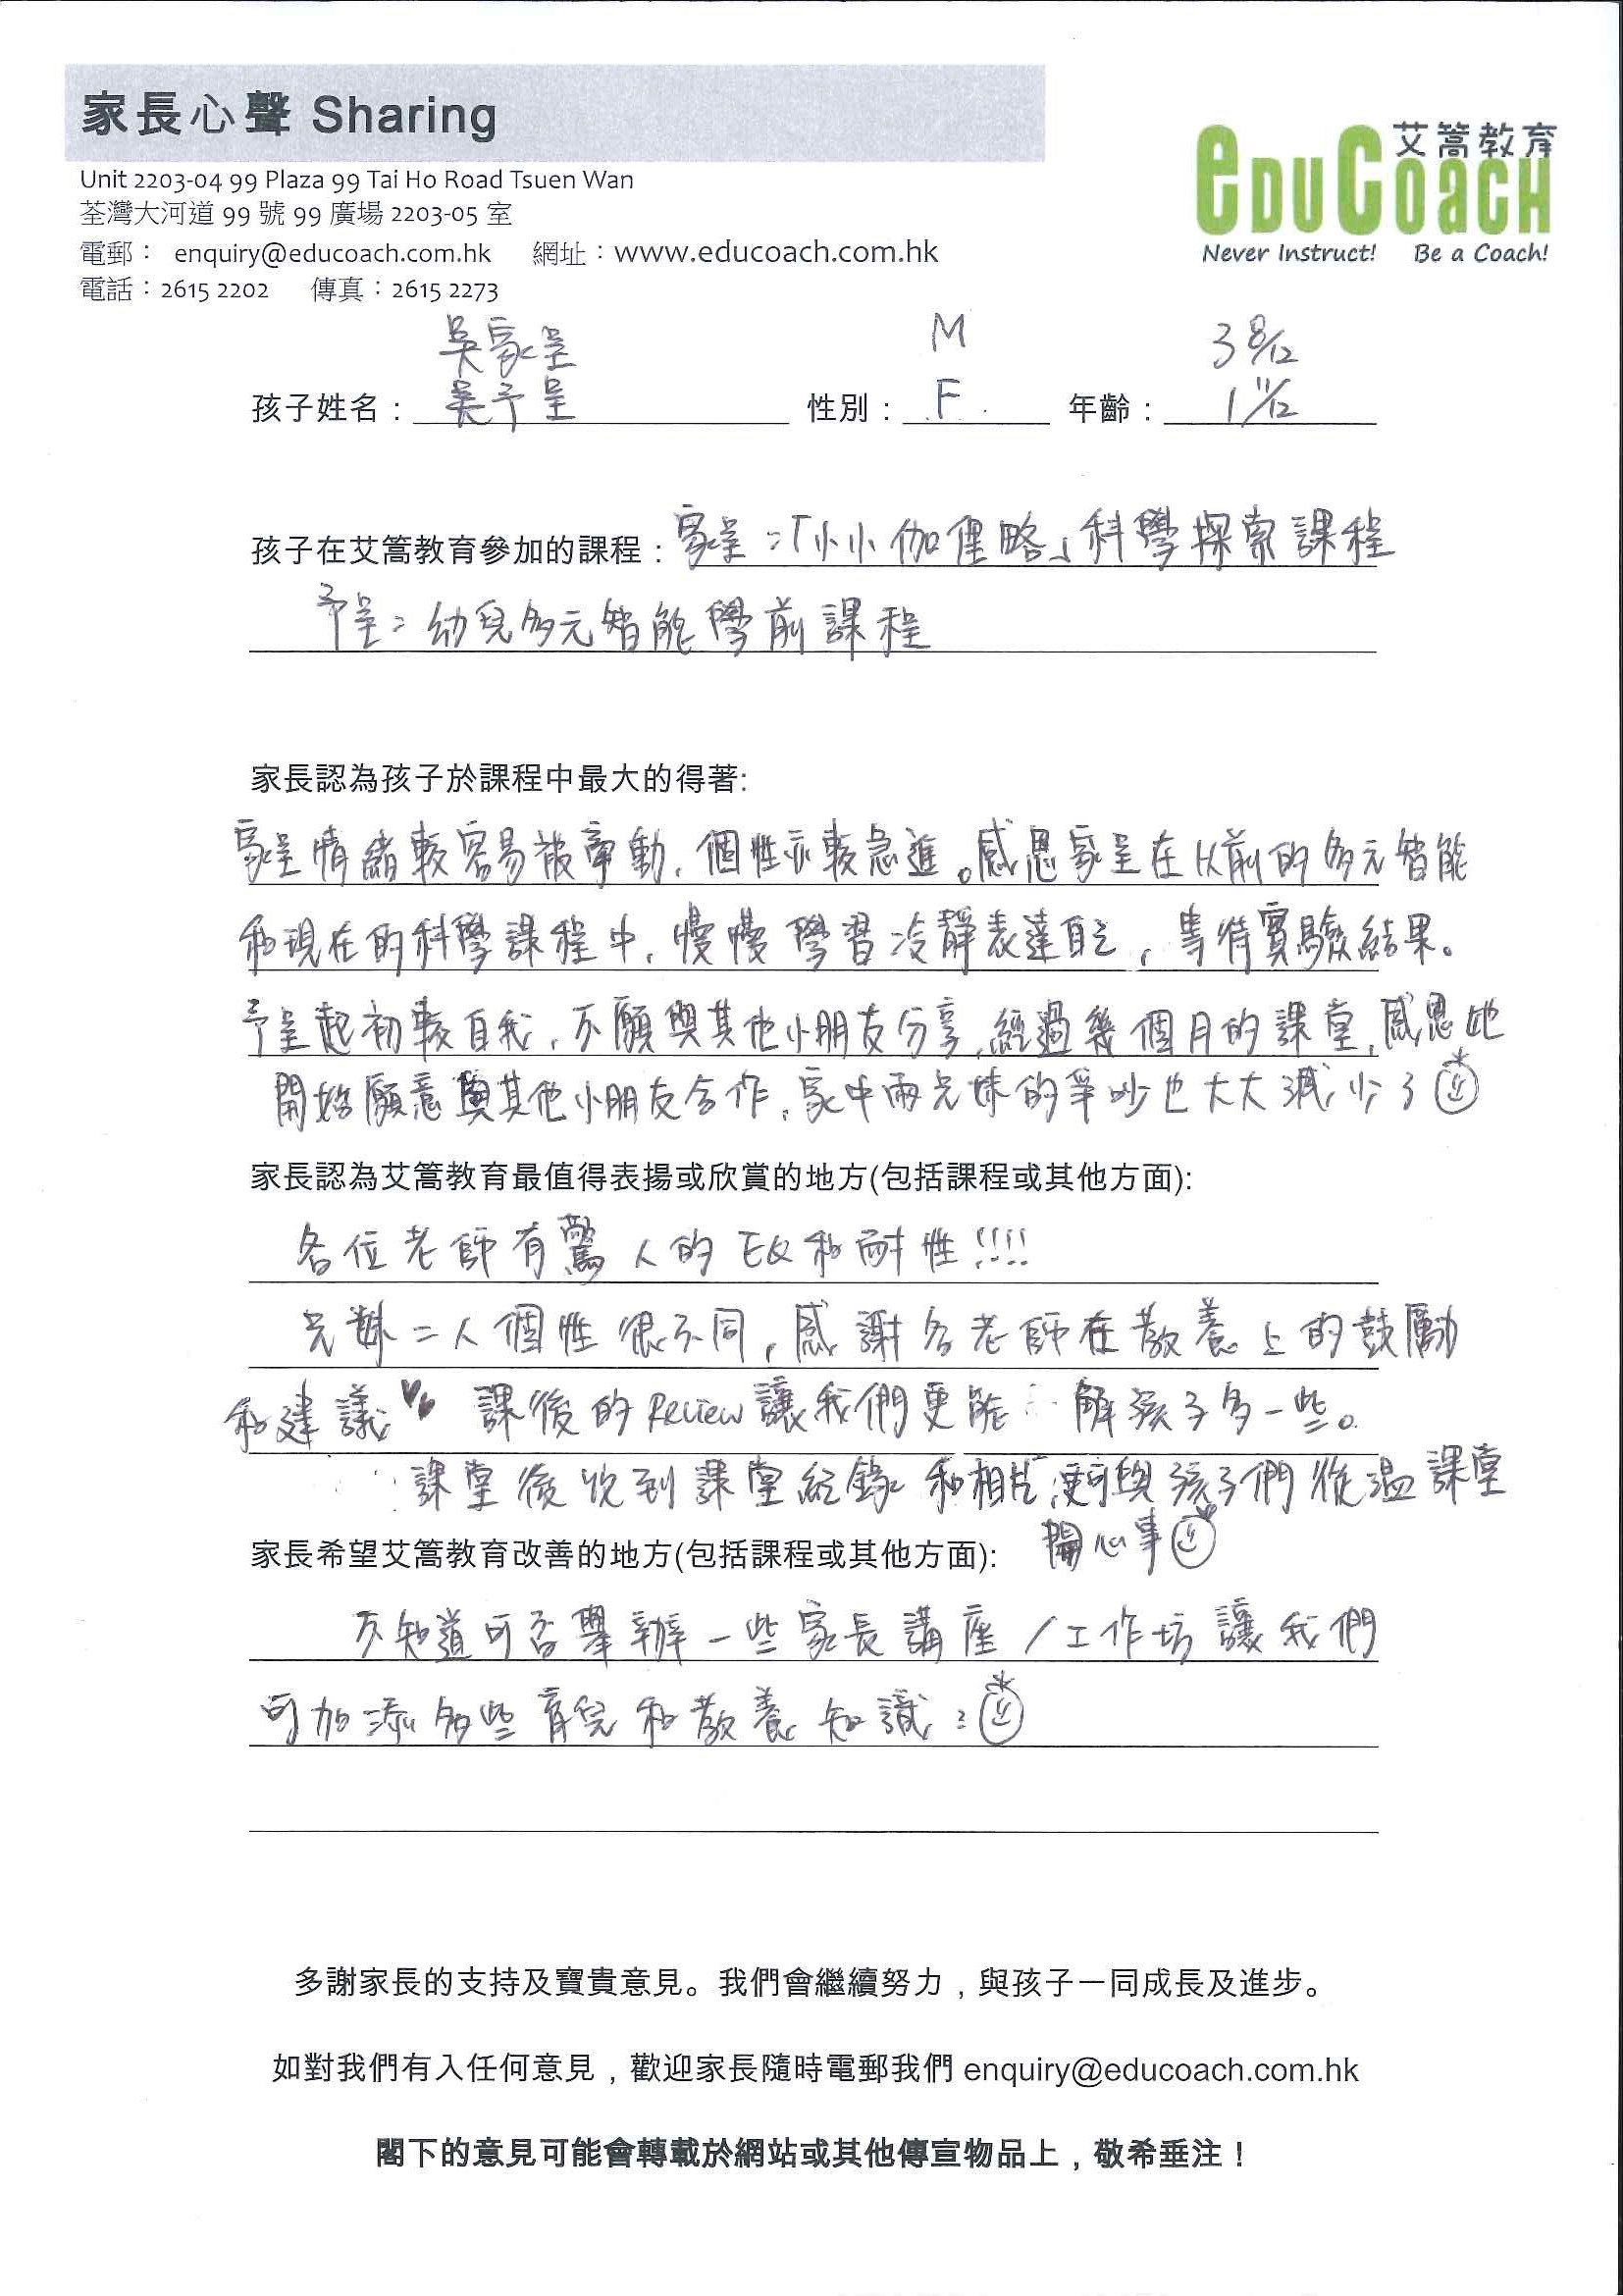 家長心聲 Sharing
艾篙教育
eDUCoacH
Never Instruct! Be a Coach!
Unit 2203-04 99 Plaza 99 Tai Ho Road Tsuen Wan
荃灣大河道 99 號 99 廣場 2203-05 室
電郵： enquiry@educoach.com.hk 網址：www.educoach.com.hk
電話：2615 2202 傳真：2615 2273
吳家呈 M 3 8/12
孩子姓名： 吳予呈 性別： F 年齡： 1 11/12
孩子在艾篙教育參加的課程：家呈：「小小伽俚略」科學探索課程
予呈：幼兒多元智能學前課程
家長認為孩子於課程中最大的得著:
家呈情緒較容易被牽動，個性亦較急進。感恩家呈在以前的多元智能
和現在的科學課程中，慢慢學習冷靜表達自己，等待實驗結果。
予呈起初較自我，不願與其他小朋友分享，經過幾個月的課堂，感恩她
開始願意與其他小朋友合作，家中兩兄妹的爭吵也大大減少了
家長認為艾篙教育最值得表揚或欣賞的地方(包括課程或其他方面):
各位老師有驚人的EQ和耐性!!!!
兄妹二人個性很不同，感謝各老師在教養上的鼓勵
和建議 課後的Review讓我們更能 解孩子多一些。
課堂後收到課堂紀錄和相片，更可與孩子們從溫課堂
開心事
家長希望艾篙教育改善的地方(包括課程或其他方面):
不知道可否舉辦一些家長講座/工作坊讓我們
可加添多些育兒和教養知識：
多謝家長的支持及寶貴意見。我們會繼續努力，與孩子一同成長及進步。
如對我們有入任何意見，歡迎家長隨時電郵我們 enquiry@educoach.com.hk
閣下的意見可能會轉載於網站或其他傳宣物品上，敬希垂注！